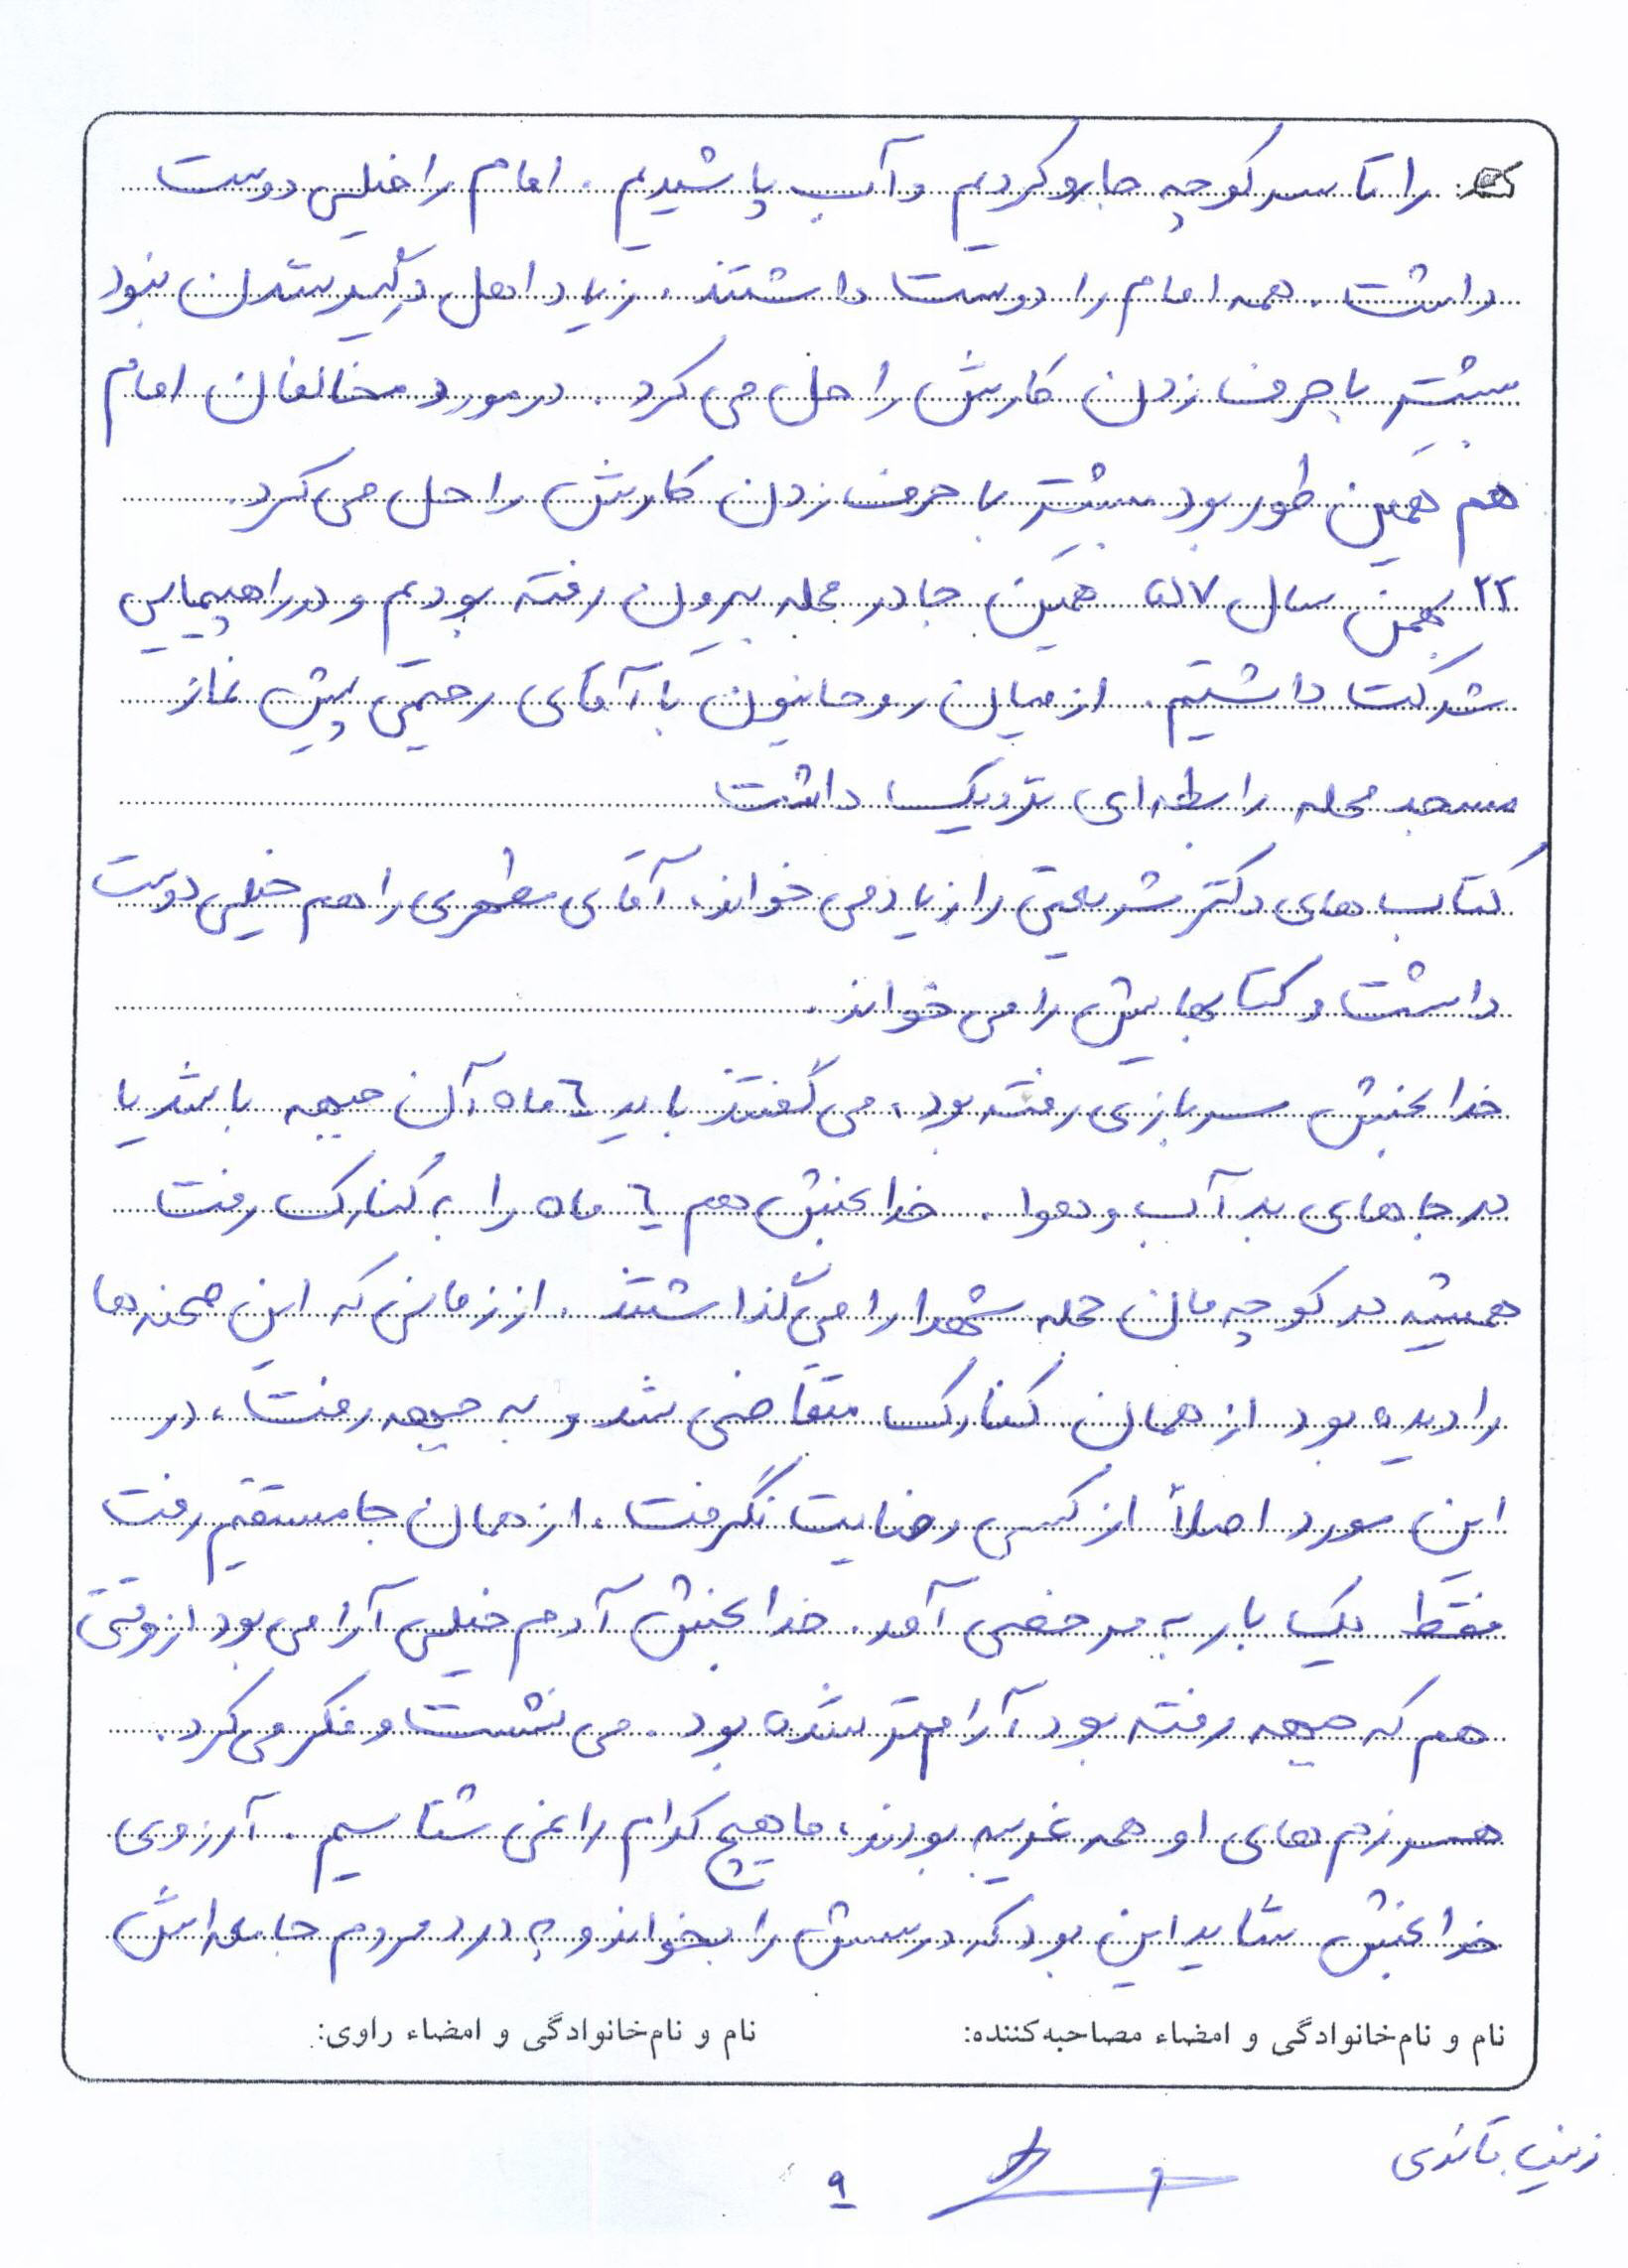 را تا سر کوچه جارو کردیم و آب پاشیدیم. امام را خیلی دوست
داشت. همه امام را دوست داشتند. زیاد اهل درگیر شدن نبود
بیشتر با حرف زدن کارش را حل می کرد. در مورد مخالفان امام
هم همین طور بود بیشتر با حرف زدن کارش را حل می کرد.
۲۲ بهمن سال ۵۷ همین جا در محله بیرون رفته بودیم و در راهپیمایی
شرکت داشتیم. از میان روحانیون با آقای رحیمی پیش نماز
مسجد محله رابطه ای نزدیک داشت
کتاب های دکتر شریعتی را زیاد می خواند، آقای مطهری را هم خیلی دوست
داشت و کتابهایش را می خواند.
خدابخش سربازی رفته بود، می گفتند باید ٦ ماه آن جبهه باشد یا
در جاهای بد آب و هوا. خدابخش هم ٦ ماه را به کنارک رفت
همیشه در کوچه مان حجله شهدا را می گذاشتند. از زمانی که این صحنه ها
را دیده بود از همان کنارک متقاضی شد و به جبهه رفت، در
این مورد اصلاً از کسی رضایت نگرفت. از همان جا مستقیم رفت
فقط یک بار به مرخصی آمد. خدابخش آدم خیلی آرامی بود از وقتی
هم که جبهه رفته بود آرامتر شده بود. می نشست و فکر می کرد.
همرزم های او همه غریبه بودند، ما هیچ کدام را نمی شناسیم. آرزوی
خدابخش شاید این بود که درسش را بخواند و به درد مردم جامعه اش
نام و نام‌خانوادگی و امضاء مصاحبه‌کننده: نام و نام‌خانوادگی و امضاء راوی:
زینب
۹